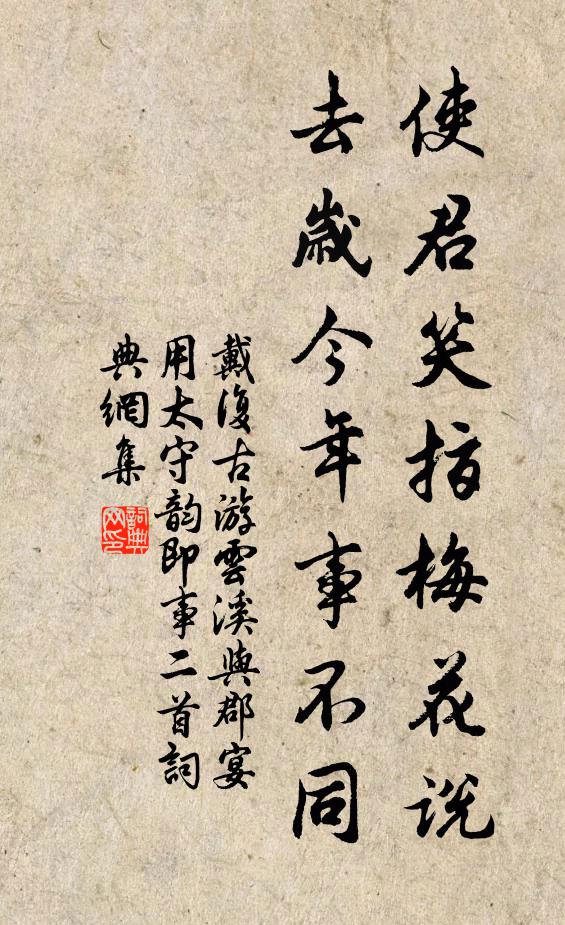 使君笑指梅花說
去歲今年事不同
戴復古游雲溪與郡宴
用太守韵即事二首詞
典網集
詞典网印